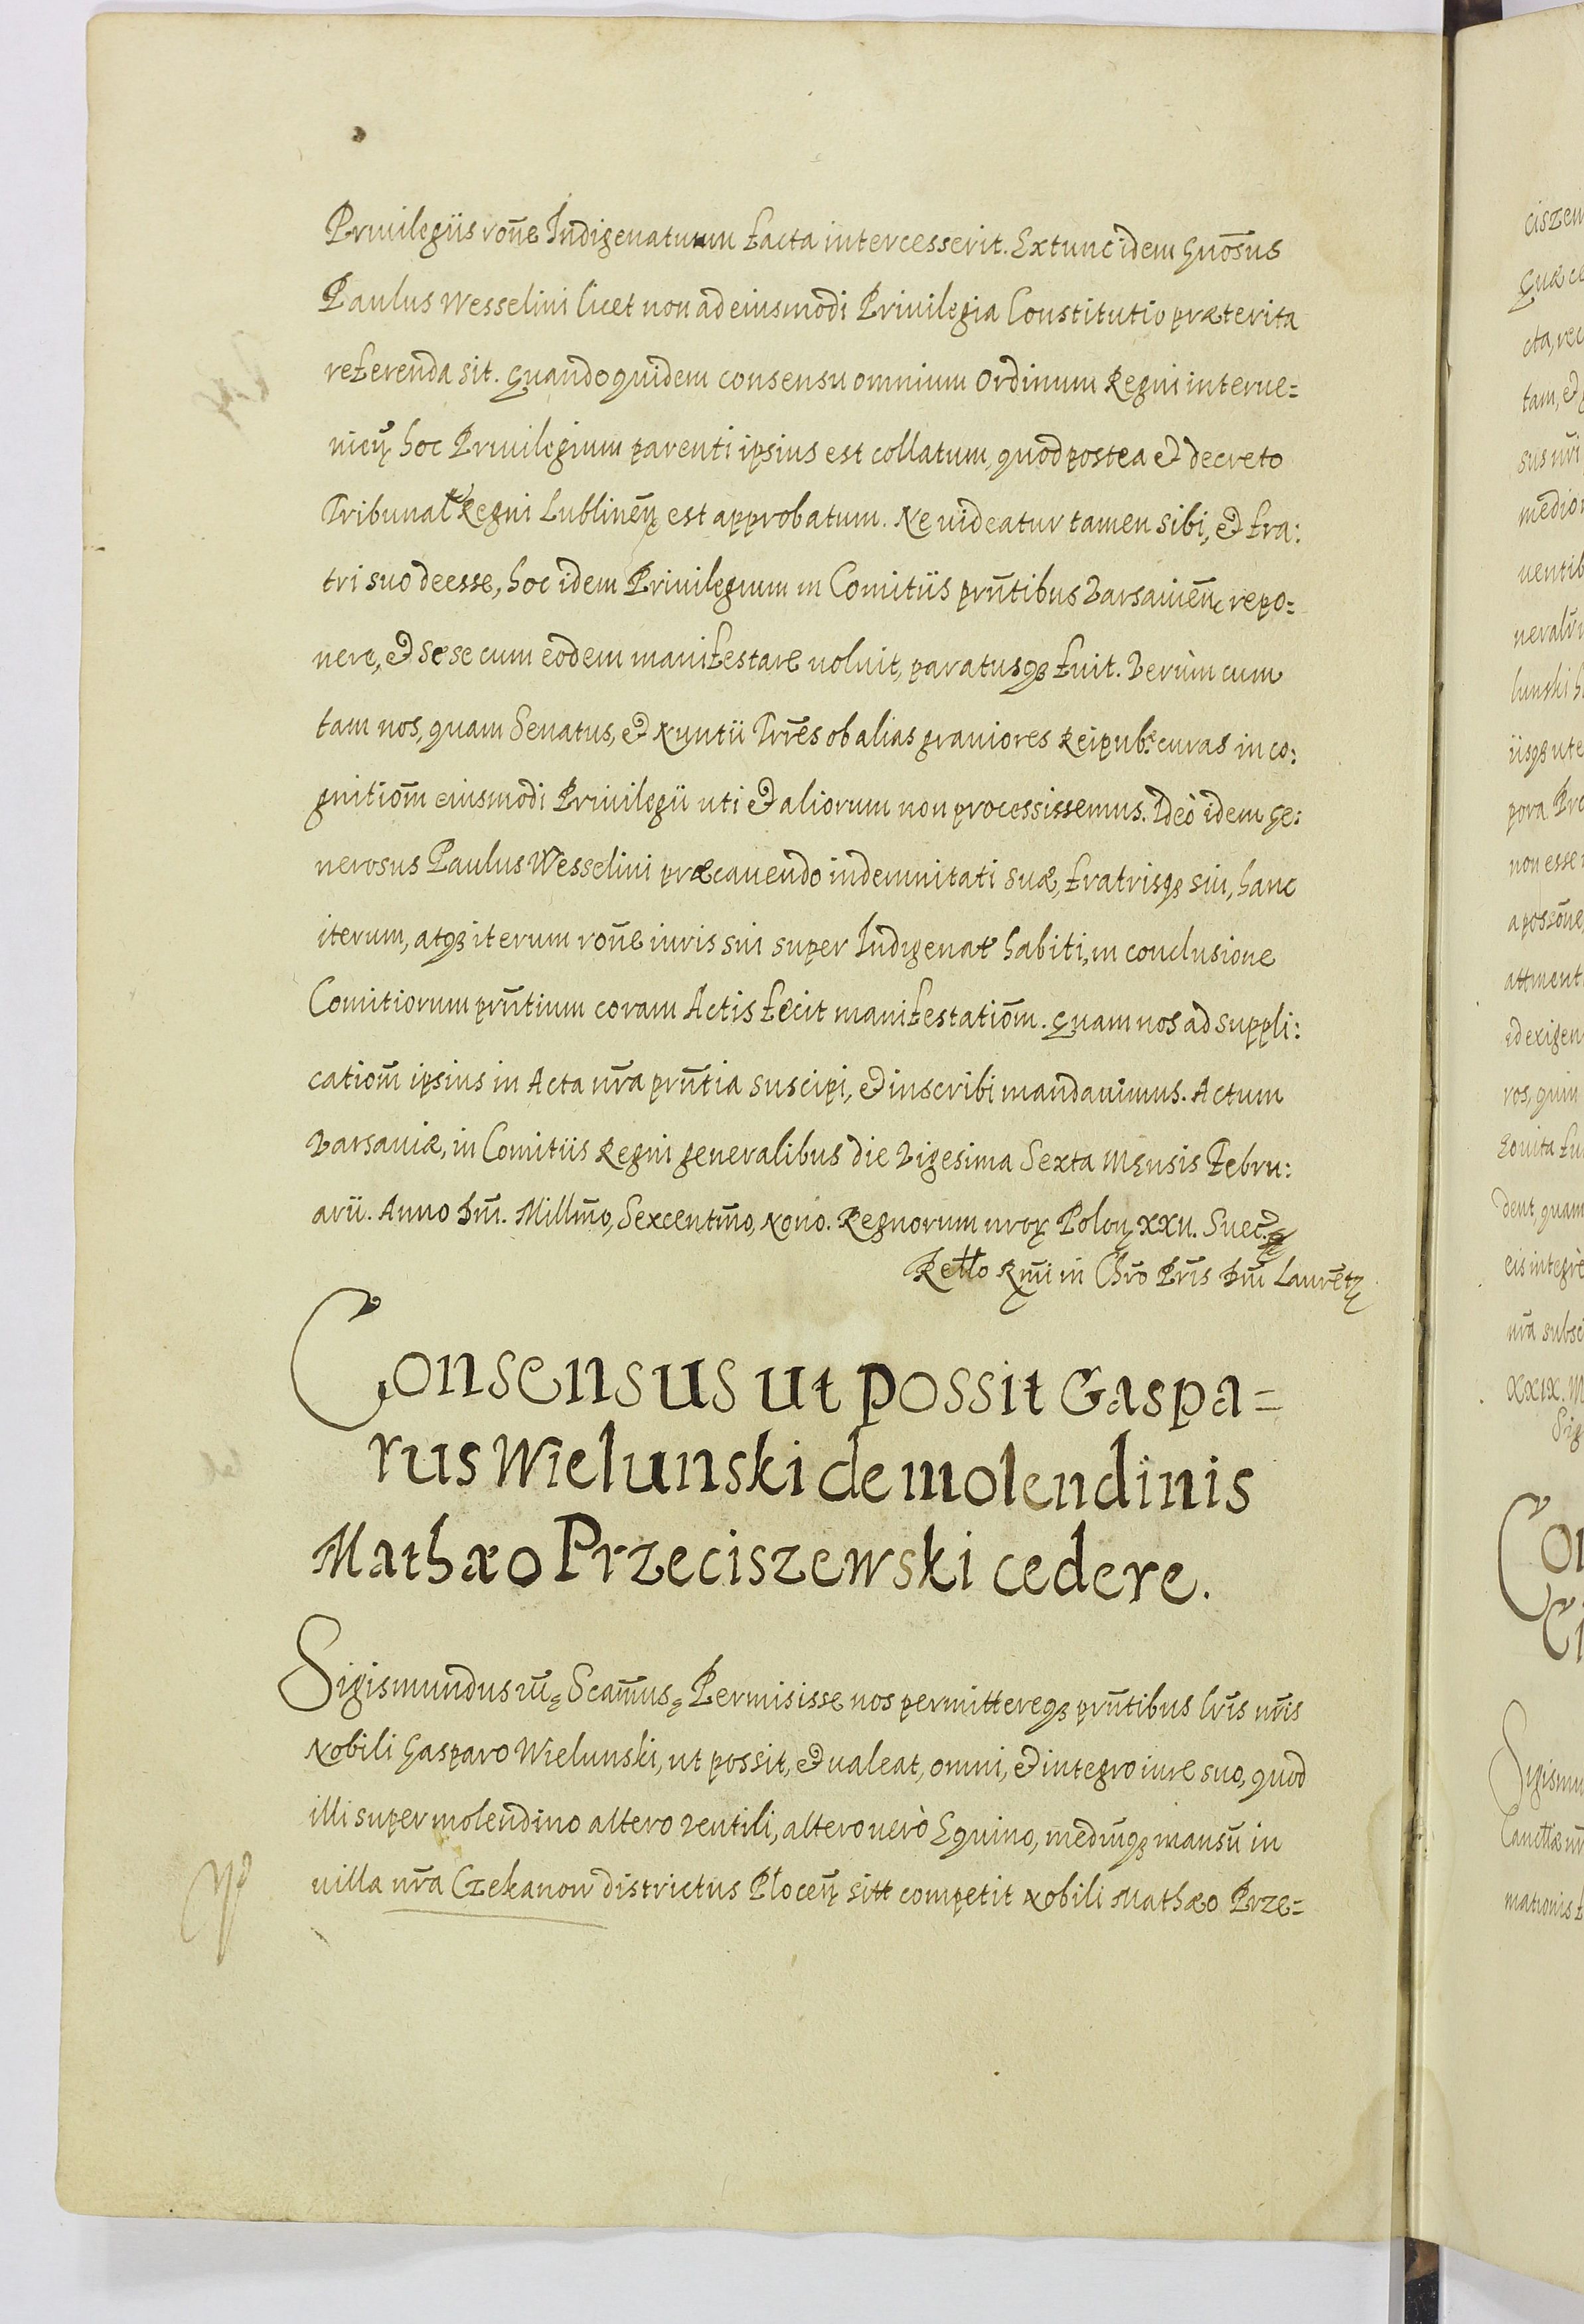 Priuilegiis rōne Indigenatuum facta intercesserit. Extunc idem Gnōsus
Paulus Wesselini licet non ad eiusmodi Priuilegia Constitutio præterita
referenda sit. Quandoquidem consensu omnium Ordinum Regni interue=
nien̄ hoc Priuilegium parenti ipsius est collatum, quod postea et decreto
Tribunal Regni Lublinēn est approbatum. Ne uideatur tamen sibi, et fra:
tri suo deesse, hoc idem Priuilegium in Comitiis prn̄tibus Varsauien̄ repo=
nere, et sese cum eodem manifestare uoluit, paratusq3 fuit. Verùm cum
tam nos, quam Senatus, et Nuntii Trr̄es ob alias grauiores Reipub: curas in co:
gnitiōm eiusmodi Priuilegii uti et aliorum non processissemus. Ideò idem Ge:
nerosus Paulus Wesselini præcauendo indemnitati suæ, fratrisq3 sui, hanc
iterum, atq3 iterum rōne iuris sui super Indigenat habiti, in conclusione
Comitiorum prn̄tium coram Actis fecit manifestatiōm. Quam nos ad suppli:
catiōm ipsius in Acta nr̄a prn̄tia suscipi, et inscribi mandauimus. Actum
Varsauiæ, in Comitiis Regni generalibus die Vigesima Sexta Mensis Febru:
arii. Anno Dn̄i. Millm̄o, Sexcentm̄o, Nono. Regnorum nror̄ Polon̄ XXII. Suec.
Rello Rm̄i in Chr̄o Pr̄is Dn̄i Laurēt
Consensus ut possit Gaspa=
rus Wielunski de molendinis
Mathæo Przeciszewski cedere.
Sigismundus III. Scam̄us. Permisisse nos permittereq3 prn̄tibus lr̄is nr̄is
Nobili Gasparo Wielunski, ut possit, et ualeat, omni, et integro iure suo, quod
illi super molendino altero Ventili, altero uerò Equino, mediūq3 mansū in
uilla nr̄a Czekanow districtus Plocen̄ sitt competit Nobili Mathæo Prze=